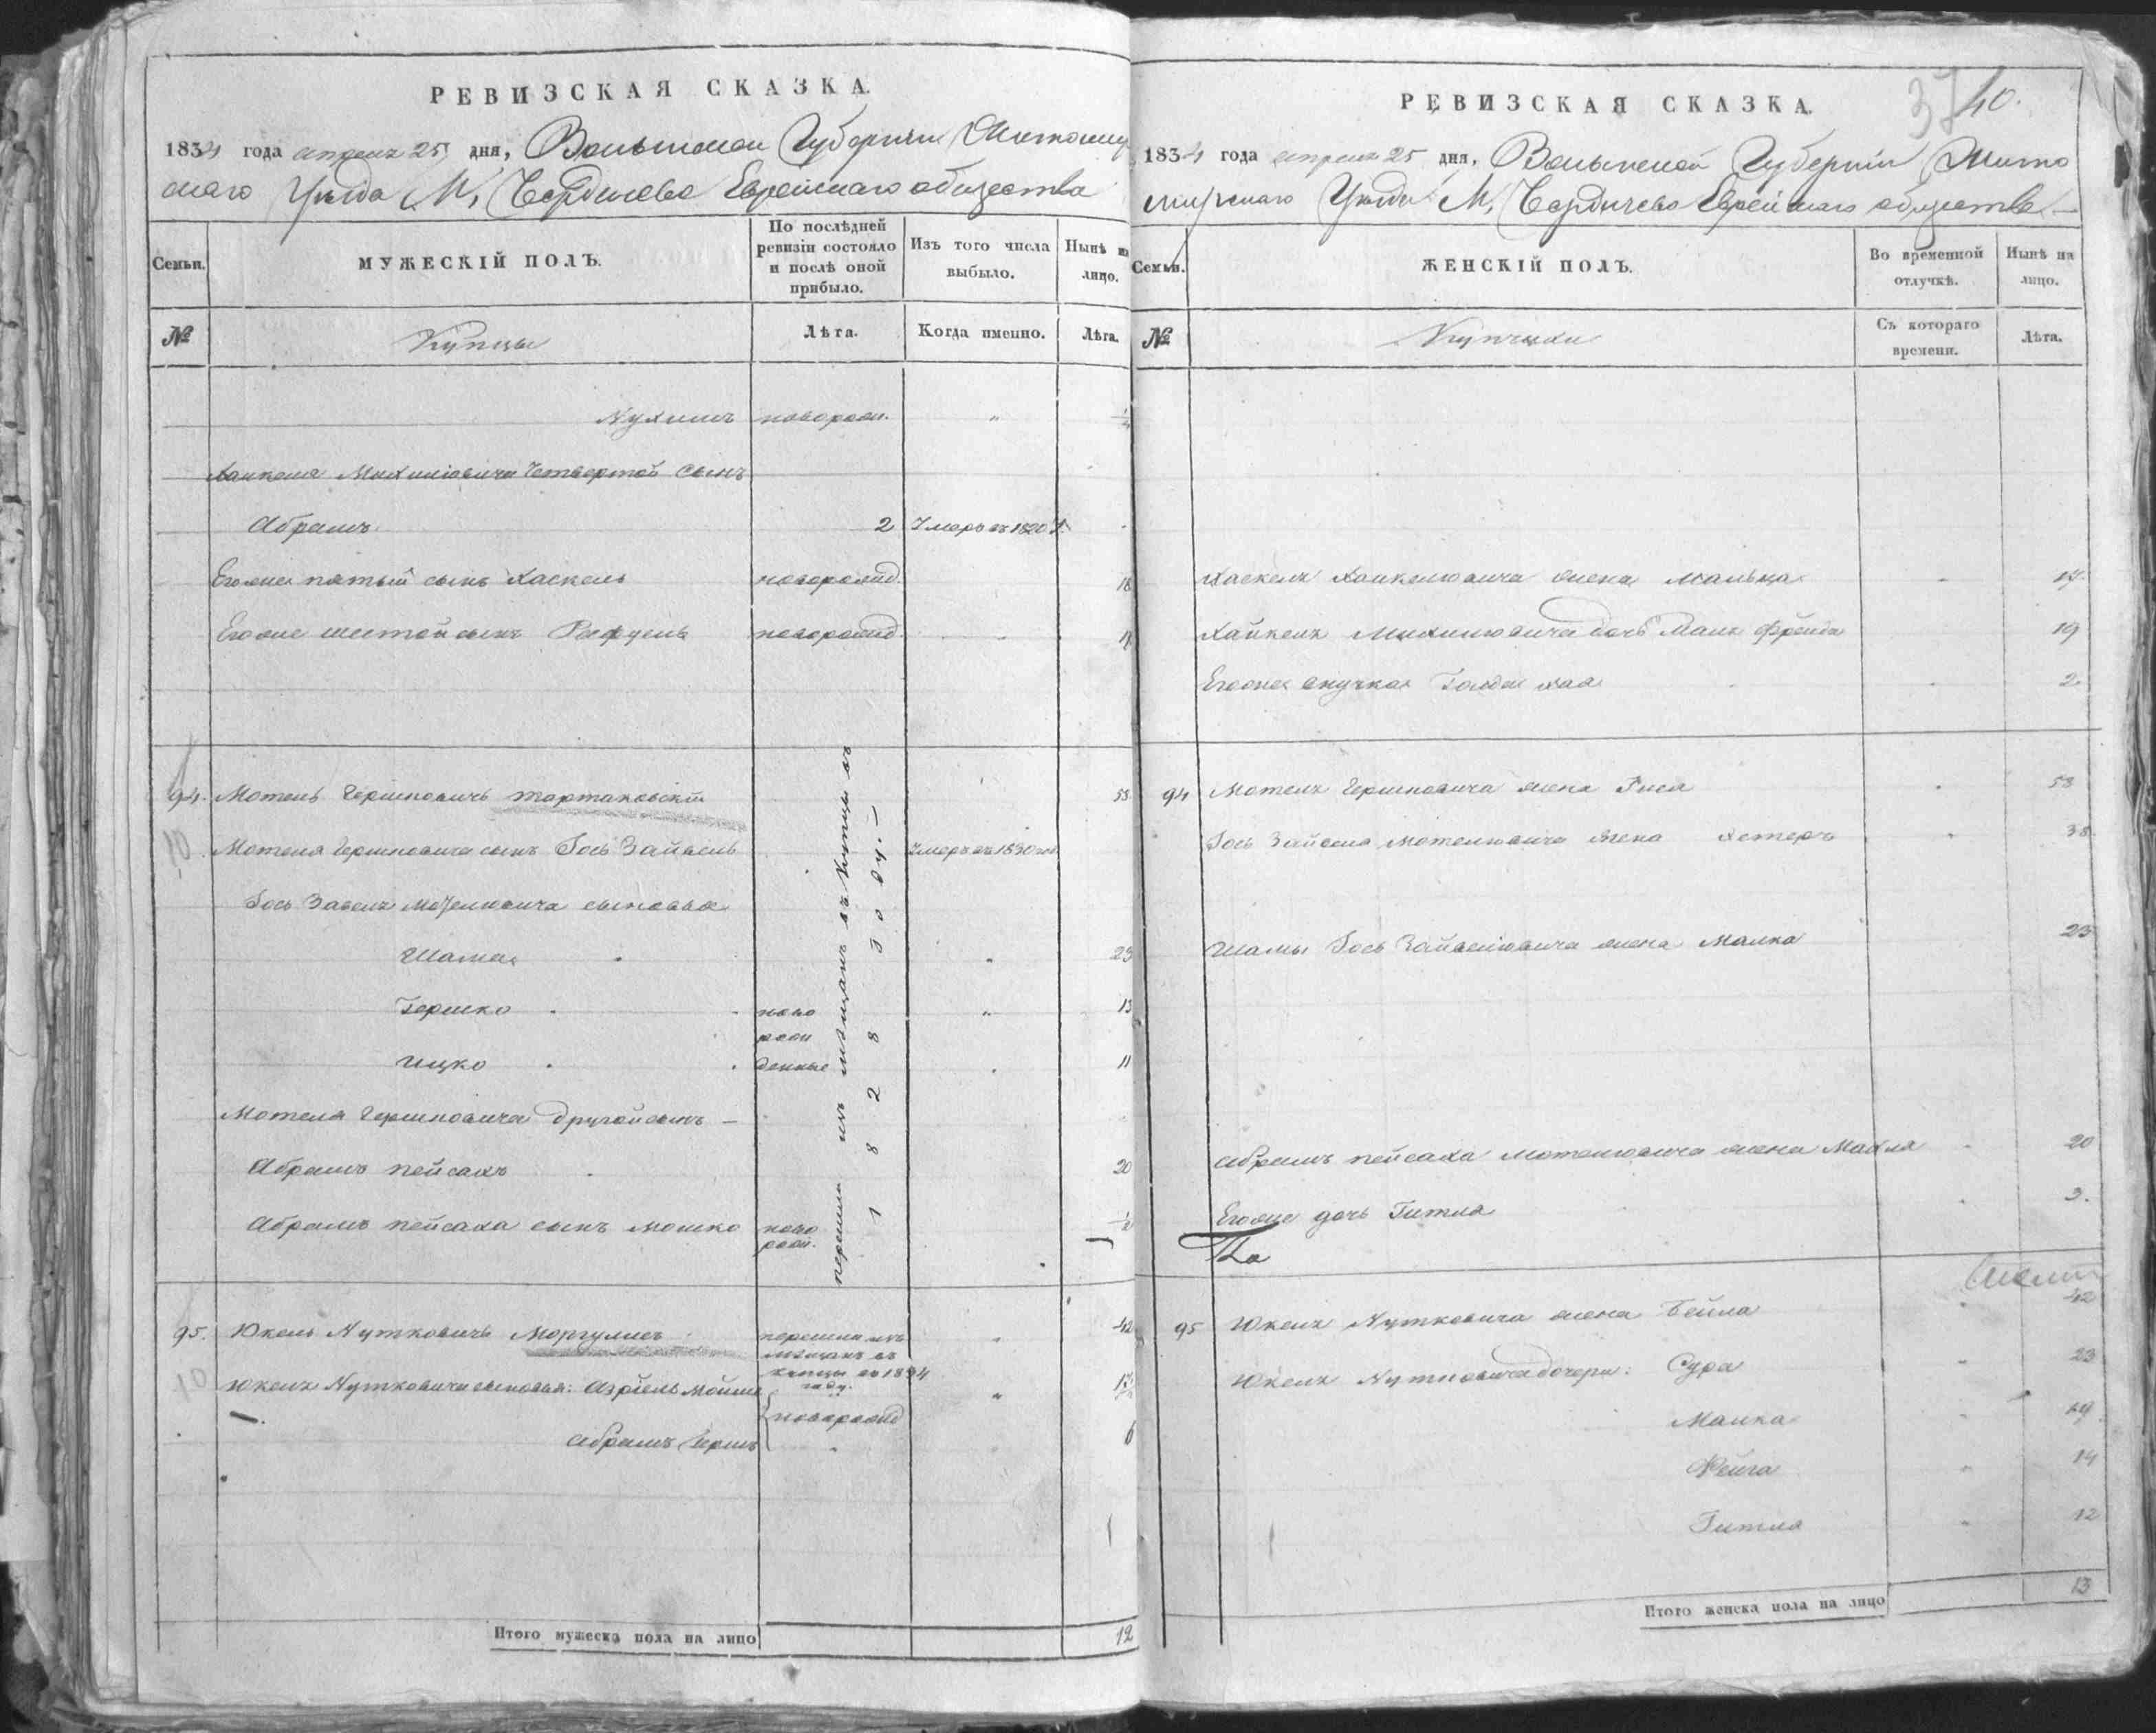 РЕВИЗСКАЯ СКАЗКА.
1834 года апреля 25 дня, Волынской Губернии Житомир
скаго Уезда М. Бердичева Еврейскаго общества
Семьи.
МУЖЕСКІЙ ПОЛЪ.
По послѣдней ревизіи состояло и послѣ оной прибыло.
Изъ того числа выбыло.
Нынѣ на лицо.
№
Купцы
Лѣта.
Когда именно.
Лѣта.
Нухимъ новорожд. "
Хаикеля Михилiовича Четвертой Сынъ
Абрамъ 2 Умеръ въ 1820 г.
Егоже пятый сынъ Хаскель новорожд. 18
Егоже шестой сынъ новорожд. "
94. Мотель Гершковичъ Тартаковскій 53
10
Мотеля Гершковича сынъ Іось Зайвель Умеръ въ 1830 год
Іось Завеля Мотелiовича сыновья
Шама " 23
Гершко ново " 13
рож
Ицко денные 11
Мотеля Гершковича другой сынъ —
Абрамъ Пейсахъ 20
Абрамъ Пейсаха сынъ Мошко ново
рож.
перешли изъ мѣщанъ въ купцы въ
1828 Году. —
95. Юкель Нутковичъ Моргулисъ перешли изъ " 42
мѣщанъ въ
купцы въ 1834
году.
10
Юкеля Нутковича сыновья: Азріель Мойше "
новорожд
Абрамъ Гершъ " 6
Итого мужеска пола на лицо 12
РЕВИЗСКАЯ СКАЗКА.
37 40.
1834 года апреля 25 дня, Волынской Губерніи Жито
мирскаго Уезда М. Бердичева Еврейскаго общества —
Семьи.
ЖЕНСКІЙ ПОЛЪ.
Во временной отлучкѣ.
Нынѣ на лицо.
№
Купчихи
Съ котораго времени.
Лѣта.
Хаскеля Хаикелiовича жена Мальца 17.
Хайкеля Михилiовича дочь Фрейда 19
Егоже внучка Голда Хая 2.
94 Мотеля Гершковича жена 53
Іось Зайвеля Мотелiовича жена Естеръ 38
Шамы Іось Зайвелiовича жена Малка 23
Абрамъ Пейсаха Мотелiовича жена Махля 20
Егоже дочь Гитля 3.
95 Юкеля Нутковича жена Бейла 42
Юкеля Нутковича дочери: Сура 23
Малка 19
Фейга 14
Гитля 12
Итого женска пола на лицо 13